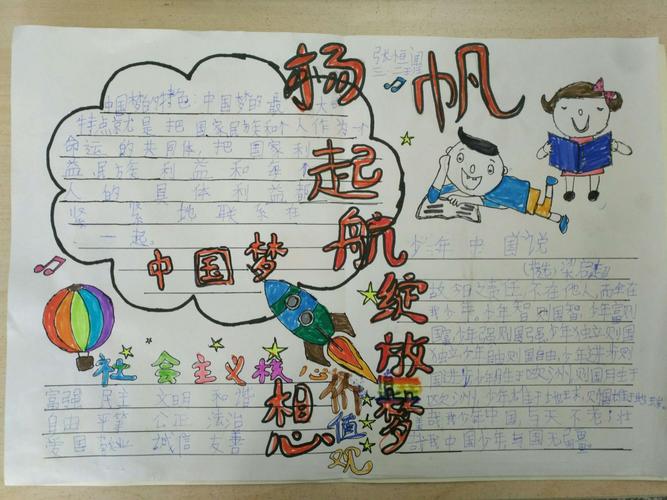 杨帆起航绽放梦想
中国梦的特色:中国梦的最大
特点就是把国家民族和个人作为一个
命运的共同体,把国家利
益民族利益和每个
人的具体利益都
紧紧地联系在
一起。
中国梦
少年中国说
梁启超
故今日之责任,不在他人,而全在
我少年,少年智则国智,少年富则
国富,少年强则国强,少年独立则国
独立,少年自由则国自由,少年进步则
国进步,少年胜于欧洲,则国胜于
欧洲,少年雄于地球,则国雄于地球
美哉我少年中国,与天不老!壮
哉我中国少年与国无疆!
社会主义核心价值观
富强 民主 文明 和谐
自由 平等 公正 法治
爱国 敬业 诚信 友善